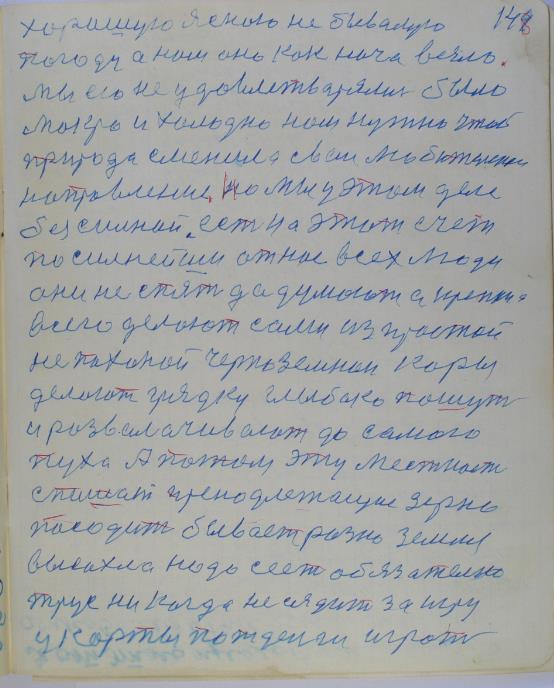 148
хорошую ясною не бывалую
погоду а нам оно как нача веяло.
Мы его не удовлетваряли было
мокро и холодно нам нужно чтоб
природа сменила свои
направление. Но мы у этом деле
безсилной. ест на этот счёт
посилнейши от нас всех люди
они не спят да думают а
всего делают сами из простой
не паханой черноземной коры
делают грядку глыбоко пошут
и розволачивают до самого
пуха А потом эту местност
спишат принодлежащие зерно
посодит бывает розно земля
высохла надо сеет обязателно
трус ни когда не сядит за игру
у карты по жденги игрот